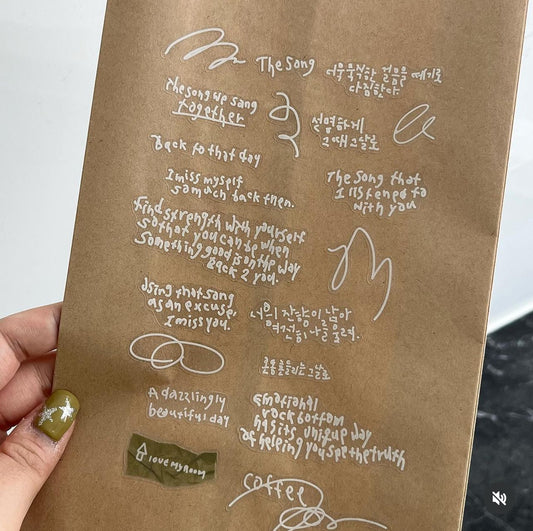 The Song
어묵묵히한 걸음을 떼기로
다짐한다
the song we sang
together
선명하게
그때 그날로
Back to that day
I miss myself
so much back then.
The song that
I listened to
with you
find strength with yourself
so that you can be when
something good is on the way
Back 2 you.
Using that song
as an excuse,
I miss you.
너의 잔향이 남아
여전히 나를 울려.
흔들리는 그날로
A dazzlingly
beautiful day
Emotional
rock bottom
has its unique way
of helping you see the truth
love my room
coffee